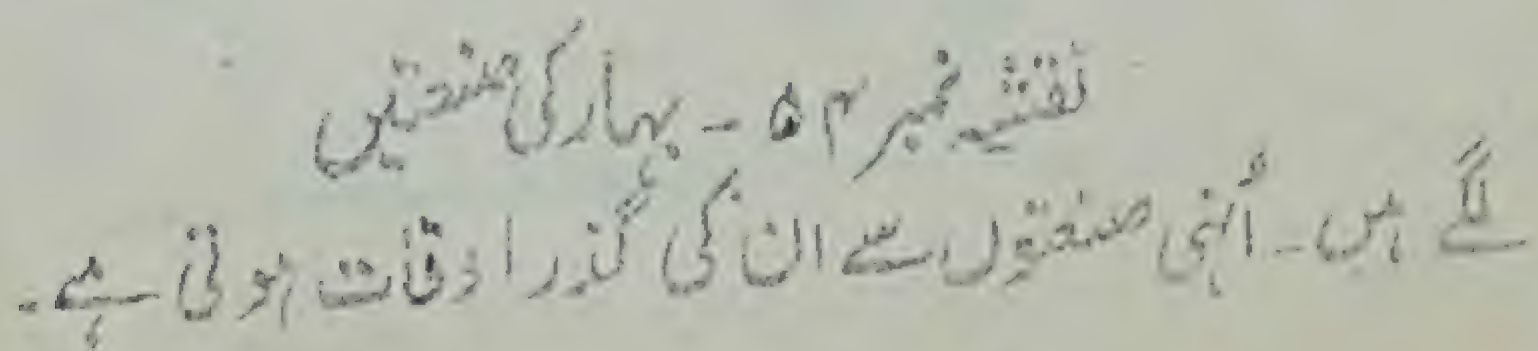 نقشہ نمبر ۵۴ - بہار کی صنعتیں
لگے ہیں۔ اُنہی صنعتوں سے ان کی گذر اوقات ہوتی ہے۔